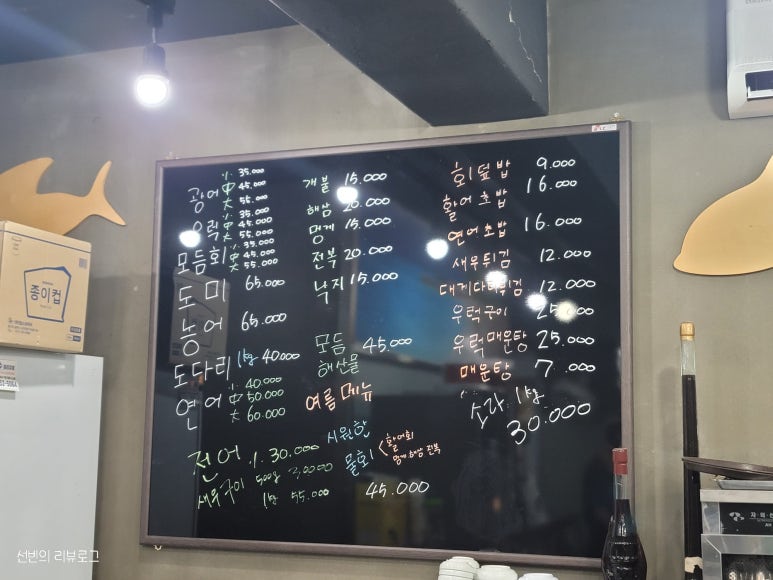 광어 小 35.000
中 45.000
大 55.000
우럭 小 35.000
中 45.000
大 55.000
모듬회 小 35.000
中 45.000
大 55.000
도미 65.000
농어 65.000
도다리 1kg 40.000
연어 小 40.000
中 50.000
大 60.000
전어 小 30.000
새우구이 500g
1kg 55.000
개불 15.000
해삼 20.000
멍게 15.000
전복 20.000
낙지 15.000
모듬 45.000
해산물
여름 메뉴
시원한
물회
활어회
멍게 해삼 전복
45.000
회덮밥 9.000
활어초밥 16.000
연어초밥 16.000
새우튀김 12.000
대게다리튀김 12.000
우럭구이 25.000
우럭매운탕 25.000
매운탕 7.000
소라 1kg
30.000
종이컵
선빈의 리뷰로그